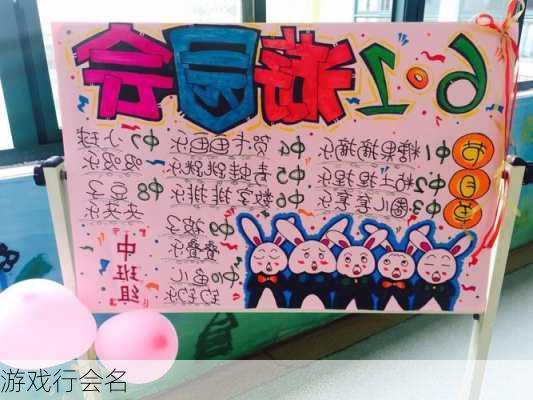 6·1
会
中1糖果摘摘乐 中4贺卡画画乐 中7小球
中2粘土捏捏乐 中5青蛙跳跳乐 滚滚乐
中3圈儿套套乐 中6数字排排乐 中8豆子
夹夹乐
中9被子
叠叠乐
中10鱼儿
钓钓乐
节
目
中班组
游戏行会名